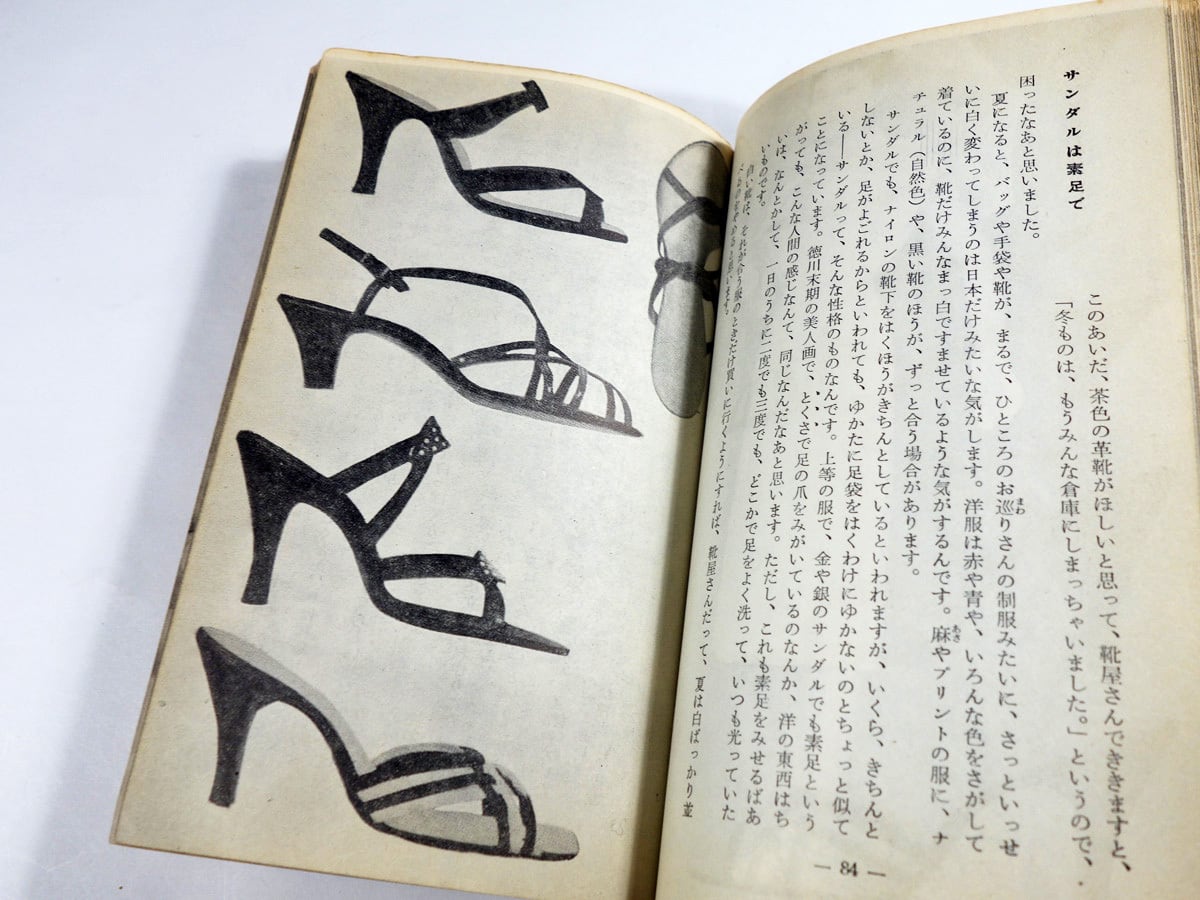 サンダルは素足で
このあいだ、茶色の革靴がほしいと思って、靴屋さんでききますと、
「冬ものは、もうみんな倉庫にしまっちゃいました。」というので、
困ったなあと思いました。
夏になると、バッグや手袋や靴が、まるで、ひところのお巡りさんの制服みたいに、さっといっせ
まわ
いに白く変わってしまうのは日本だけみたいな気がします。洋服は赤や青や、いろんな色をさがして
着ているのに、靴だけみんなまっ白ですませているような気がするんです。麻やプリントの服に、ナ
あさ
チュラル（自然色）や、黒い靴のほうが、ずっと合う場合があります。
サンダルでも、ナイロンの靴下をはくほうがきちんとしているといわれますが、いくら、きちんと
しないとか、足がよごれるからといわれても、ゆかたに足袋をはくわけにゆかないのとちょっと似て
いる――サンダルって、そんな性格のものなんです。上等の服で、金や銀のサンダルでも素足という
ことになっています。徳川末期の美人画で、とくさで足の爪をみがいているのなんか、洋の東西はち
がっても、こんな人間の感じなんて、同じなんだなあと思います。ただし、これも素足をみせるばあ
いは、なんとかして、一日のうちに二度でも三度でも、どこかで足をよく洗って、いつも光っていた
いものです。
白い靴は、それが合う服のときだけ買いに行くようにすれば、靴屋さんだって、夏は白ばっかり並
— 84 —